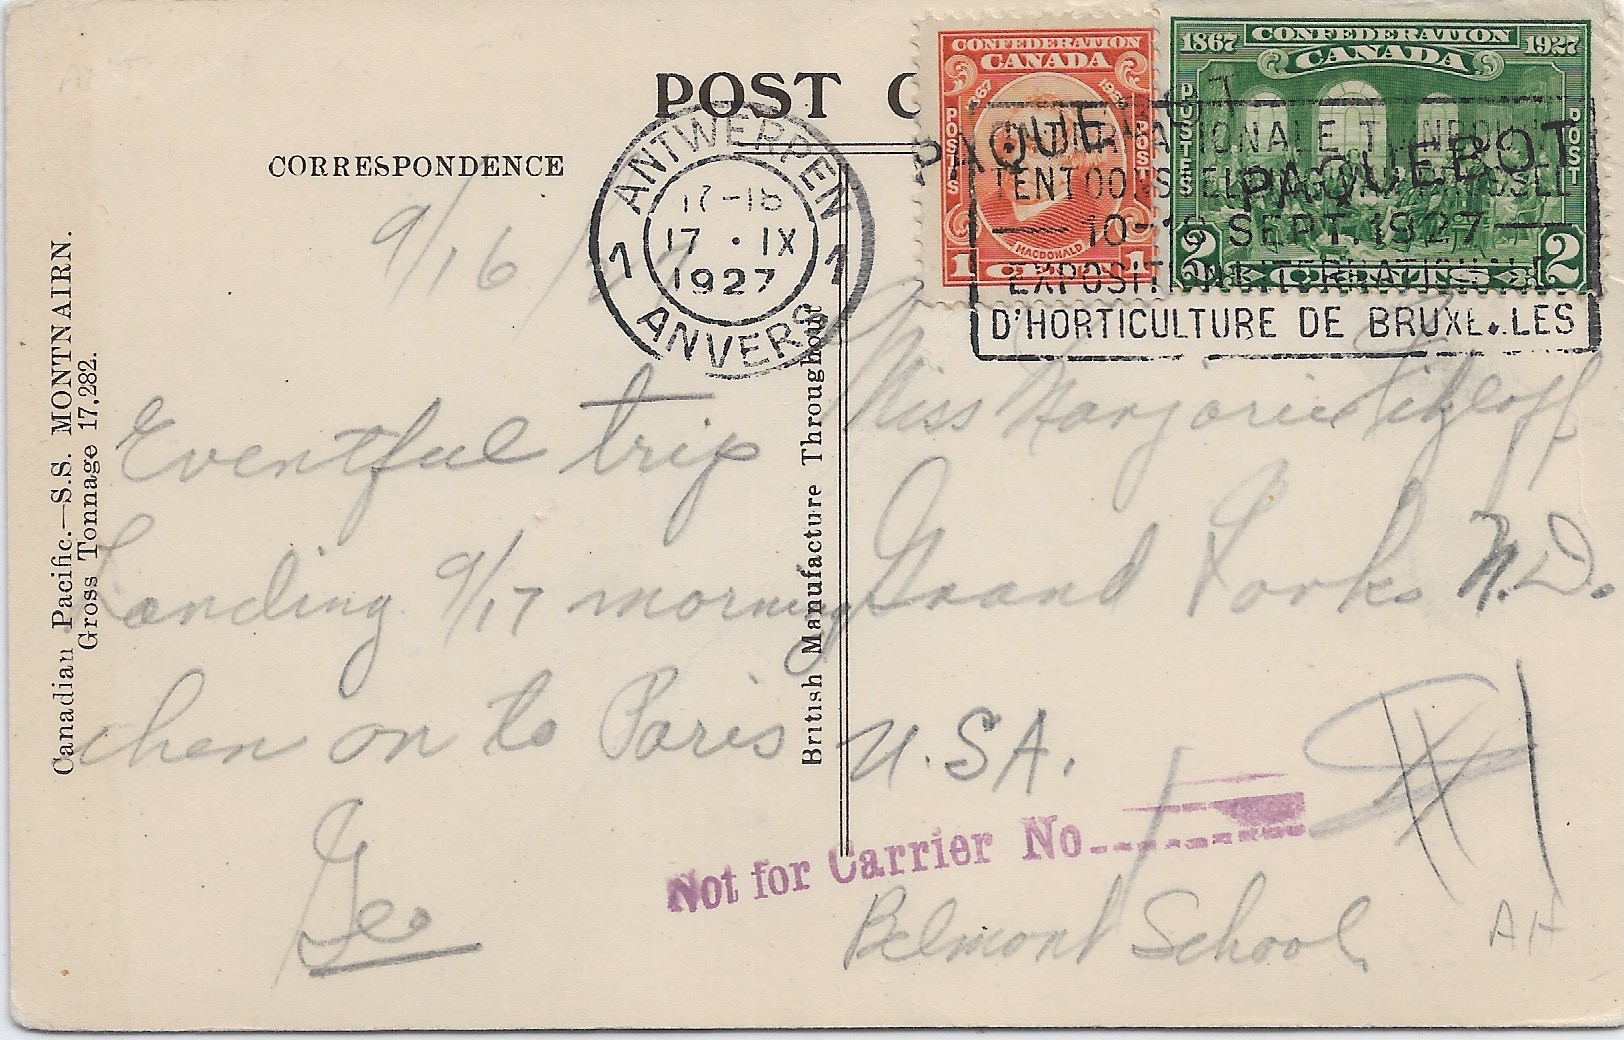 POST C
CORRESPONDENCE
ANTWERPEN
17-18
17 · IX
1927
1 1
ANVERS
CONFEDERATION
CANADA
POSTES POSTES
MACDONALD
1 CENT 1
1867 CONFEDERATION 1927
CANADA
POSTES POST
2 CENTS 2
PAQUEBOT
PAQUEBOT
INTERNATIONALE TUINBOUW
TENTOONSTELLING BRUSSEL
10-19 SEPT. 1927
EXPOSITION INTERNATIONALE
D'HORTICULTURE DE BRUXELLES
9/16/27
Eventful trip
Landing 9/17 morning
then on to Paris
Geo
Miss Marjorie
Grand Forks N.D.
U.S.A.
Not for Carrier No
Belmont School
AH
Canadian Pacific.—S.S. MONTNAIRN.
Gross Tonnage 17,282.
British Manufacture Throughout